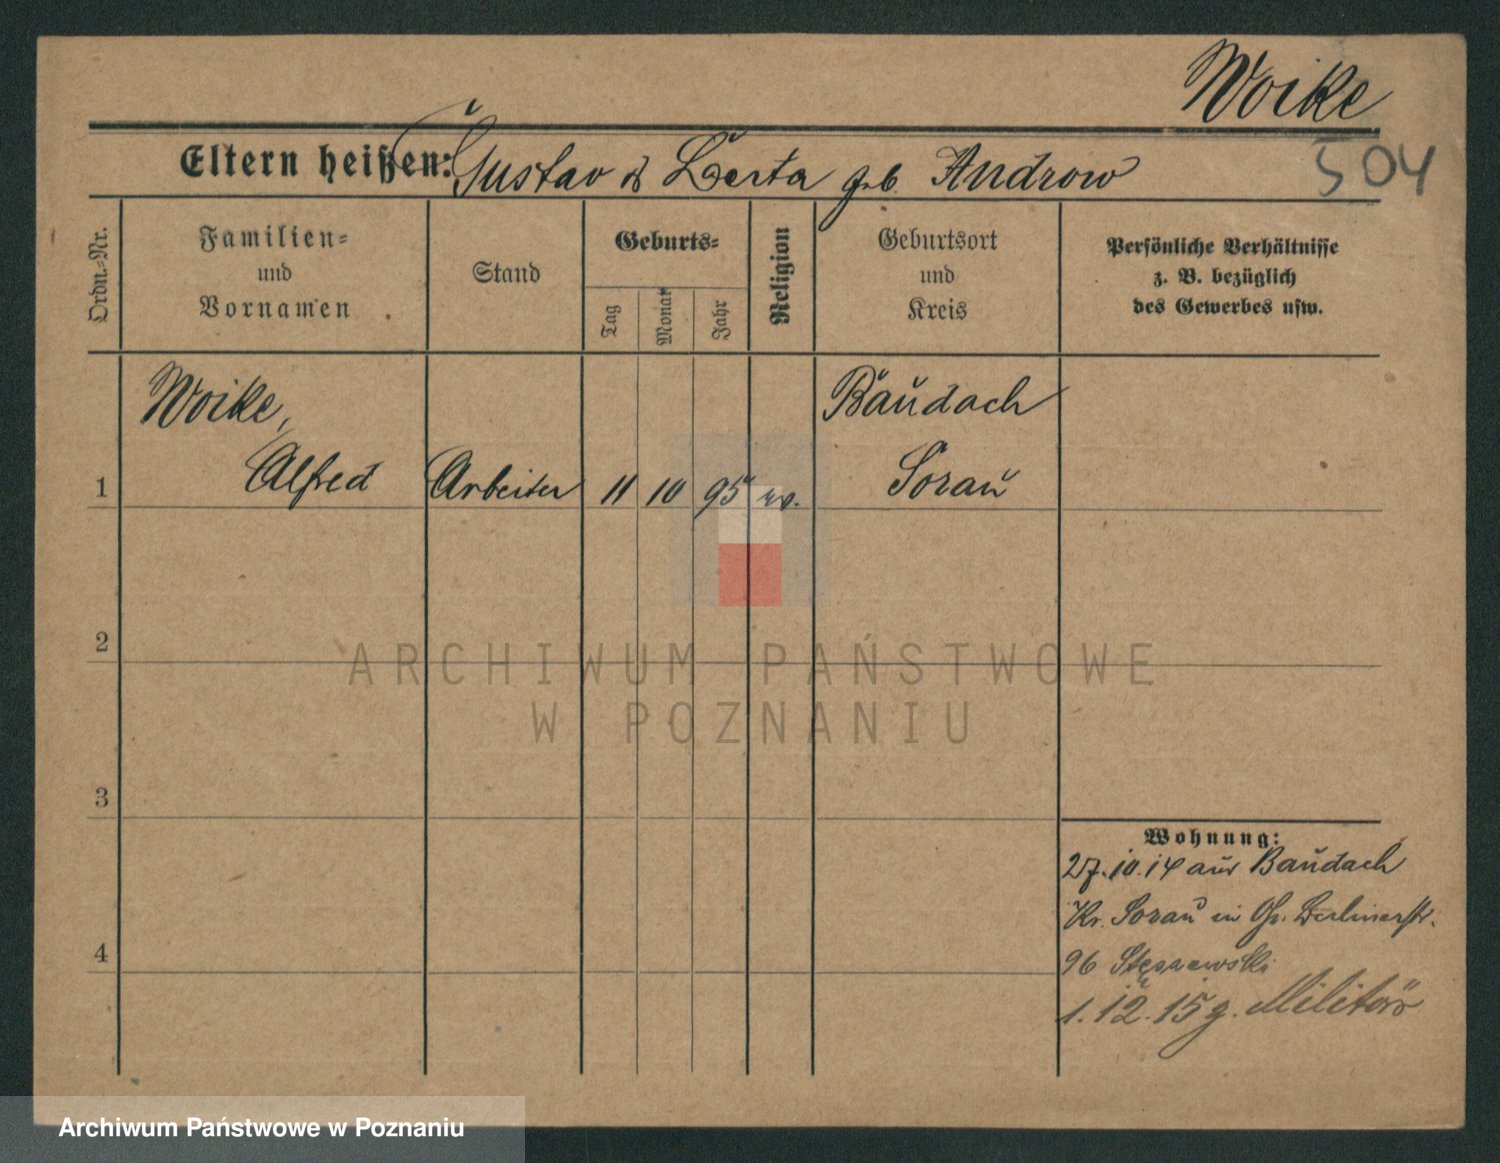 Woike
Eltern heißen: Gustav & Berta geb. Androw
504
Ordn.-Nr.
Familien-
und
Vornamen
Stand
Geburts-
Tag
Monat
Jahr
Religion
Geburtsort
und
Kreis
Persönliche Verhältnisse
z. B. bezüglich
des Gewerbes usw.
Woike,
Alfred
Baudach
Sorau
1
Arbeiter
11
10
95
ev.
2
3
4
Wohnung:
27.10.14 aus Baudach
Kr. Sorau in Gr. Berlinerstr.
96 Stęszewski
1.12.15 z. Militär
ARCHIWUM PAŃSTWOWE
W POZNANIU
Archiwum Państwowe w Poznaniu